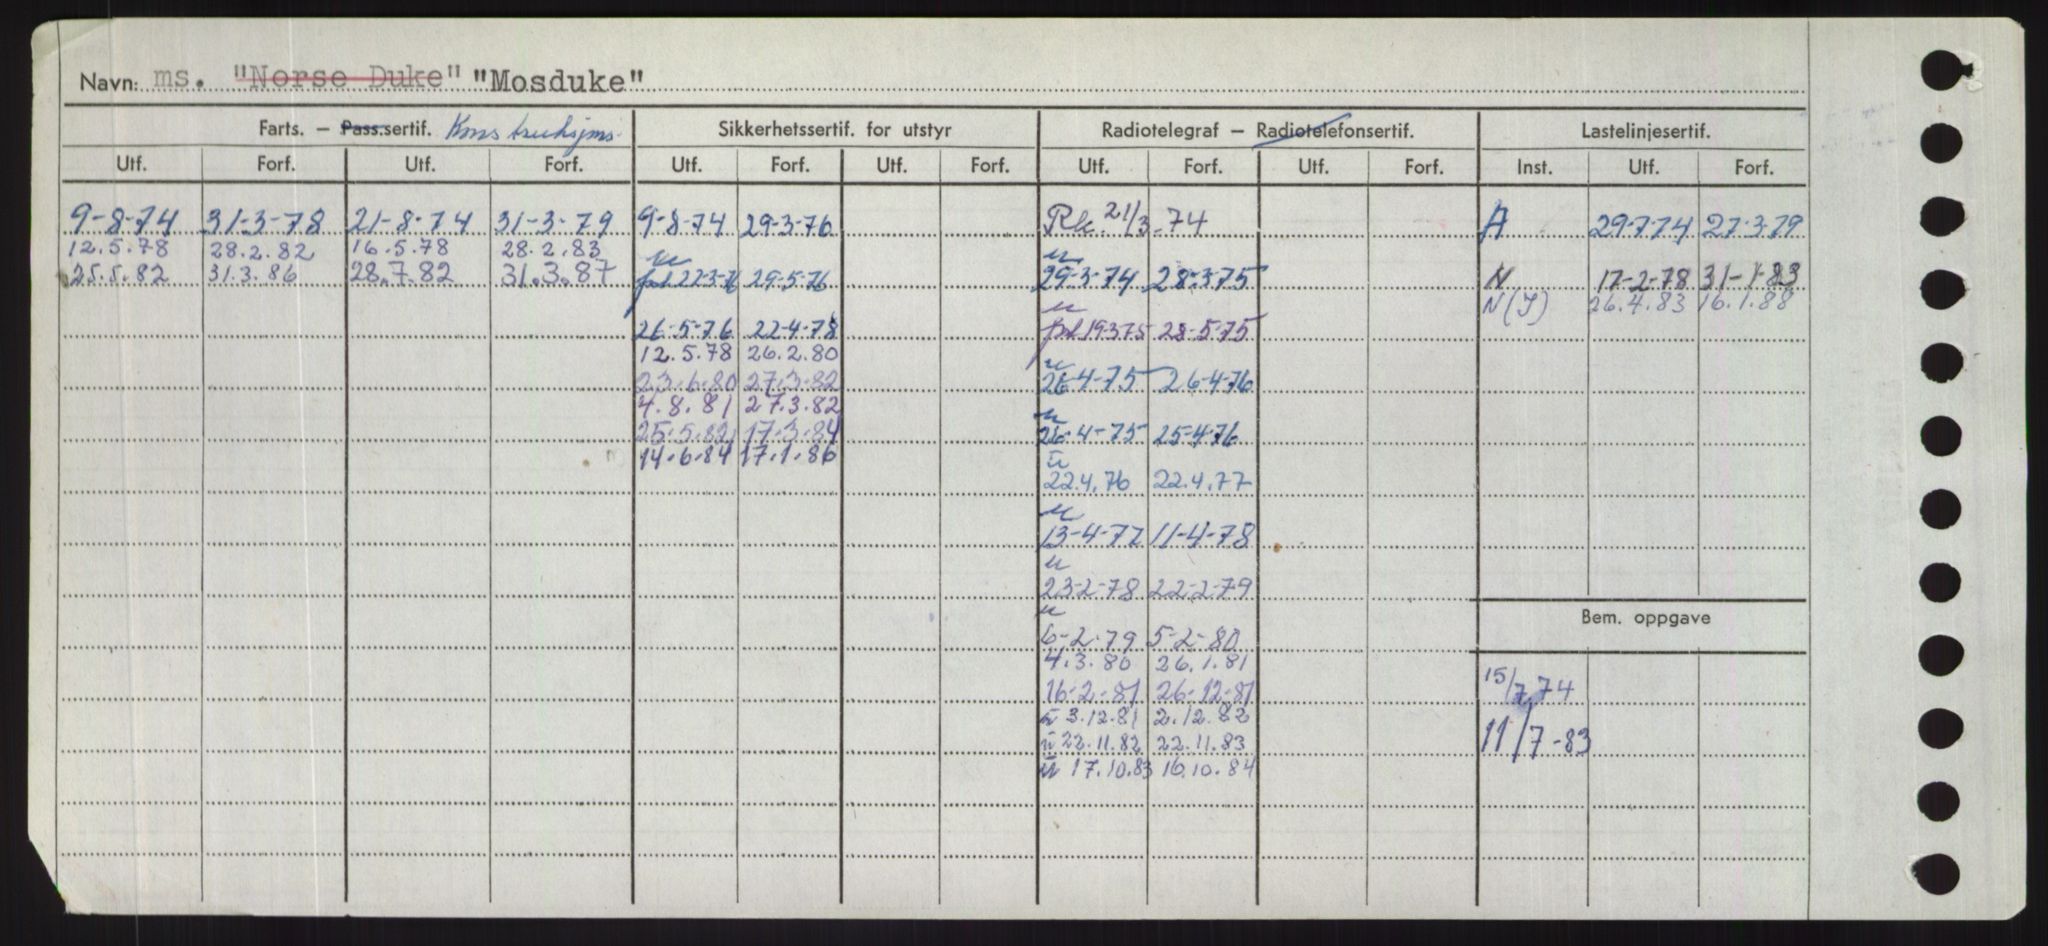 Navn: ms. "Norse Duke" "Mosduke"
Farts. – Pass.sertif. Konstruksjons- Sikkerhetssertif. for utstyr Radiotelegraf – Radiotelefonsertif. Lastelinjesertif.
Utf. Forf. Utf. Forf. Utf. Forf. Utf. Forf. Utf. Forf. Utf. Forf. Inst. Utf. Forf.
9-8-74 31-3-78 21-8-74 31-3-79 9-8-74 29-3-76 21/3-74 A 29-7-74 27-3-79
12.5.78 28.2.82 16.5.78 28.2.83
25.5.82 31.3.86 28.7.82 31.3.87 22-3-76 29-5-76 29-3-74 28-3-75 N 17-2-78 31-1-83
N(I) 26.4.83 16.1.88
26-5-76 22-4-78 19-3-75 28-5-75
12.5.78 26.2.80
23.6.80 27.3.82 26-4-75 26-4-76
4.8.81 27.3.82
25.5.82 17.3.84 26-4-75 25-4-76
14.6.84 17.1.86
22.4.76 22.4.77
13-4-77 11-4-78
23-2-78 22-2-79
Bem. oppgave
6-2-79 5-2-80
4.3.80 26.1.81
15/7 74
16-2-81 26-12-81
3.12.81 2.12.82
22.11.82 22.11.83
11/7-83
17.10.83 16.10.84